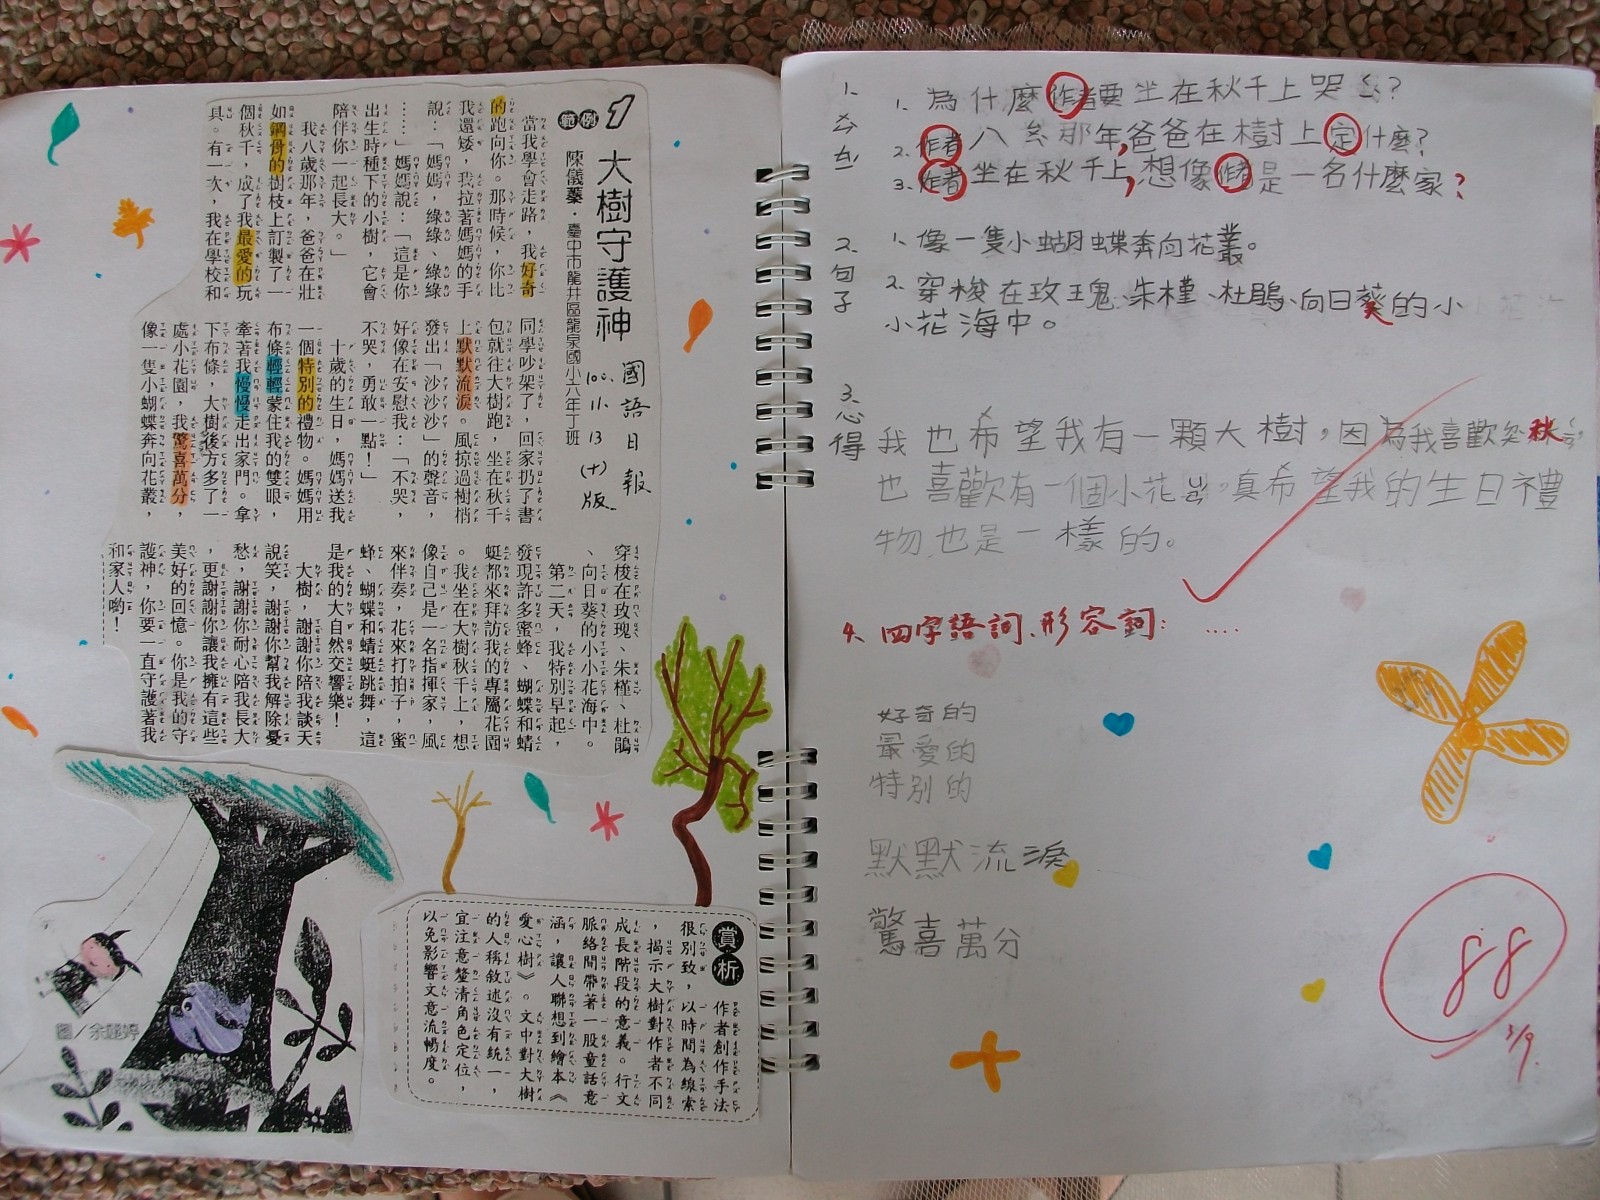 範例1 大樹守護神
陳儀蓁・臺中市龍井區龍泉國小六年丁班
國語日報
100.11.13(十)版
當我學會走路,我好奇
的跑向你。那時候,你比
我還矮,我拉著媽媽的手
說:「媽媽,綠綠、綠綠
……」媽媽說:「這是你
出生時種下的小樹,它會
陪伴你一起長大。」
我八歲那年,爸爸在壯
如鋼骨的樹枝上訂製了一
個秋千,成了我最愛的玩
具。有一次,我在學校和
同學吵架了,回家扔了書
包就往大樹跑,坐在秋千
上默默流淚。風掠過樹梢
發出「沙沙沙」的聲音,
好像在安慰我:「不哭,
不哭,勇敢一點!」
十歲的生日,媽媽送我
一個特別的禮物。媽媽用
布條輕輕蒙住我的雙眼,
牽著我慢慢走出家門。拿
下布條,大樹後方多了一
處小花園,我驚喜萬分,
像一隻小蝴蝶奔向花叢,
穿梭在玫瑰、朱槿、杜鵑
、向日葵的小小花海中。
第二天,我特別早起,
發現許多蜜蜂、蝴蝶和蜻
蜓都來拜訪我的專屬花園
。我坐在大樹秋千上,想
像自己是一名指揮家,風
來伴奏,花來打拍子,蜜
蜂、蝴蝶和蜻蜓跳舞,這
是我的大自然交響樂!
大樹,謝謝你陪我談天
說笑,謝謝你幫我解除憂
愁,謝謝你耐心陪我長大
,更謝謝你讓我擁有這些
美好的回憶。你是我的守
護神,你要一直守護著我
和家人喲!
圖/余麗婷
賞析
作者創作手法
很別致,以時間為線索
,揭示大樹對作者不同
成長階段的意義。行文
脈絡間帶著一股童話意
涵,讓人聯想到繪本《
愛心樹》。文中對大樹
的人稱敘述沒有統一,
宜注意釐清角色定位,
以免影響文意流暢度。
1. 1. 為什麼作者要坐在秋千上哭ㄋㄜ?
2. 作者八ㄙㄨㄟ那年,爸爸在樹上定什麼?
3. 作者坐在秋千上,想像作者是一名什麼家?
2.句子 1. 像一隻小蝴蝶奔向花叢。
2. 穿梭在玫瑰、朱槿、杜鵑、向日葵的小
小花海中。
3.心得
我也希望我有一顆大樹,因為我喜歡盪秋千
也喜歡有一個小花ㄩㄢ,真希望我的生日禮
物也是一樣的。
4、四字語詞、形容詞:……
好奇的
最愛的
特別的
默默流淚
驚喜萬分
88
3/9.